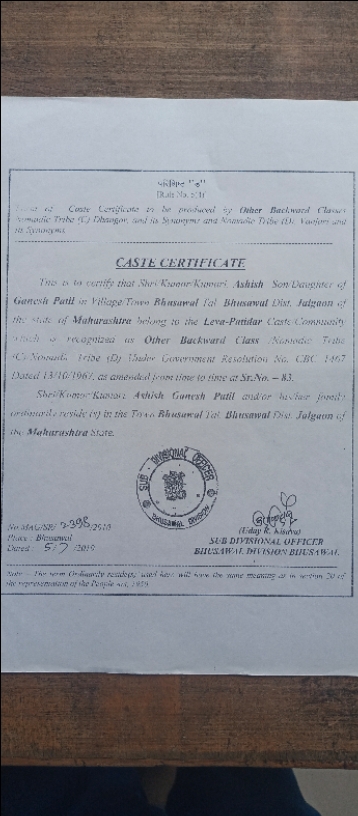 परिशिष्ट
Caste Certificate to be produced by Other Backward Classes
Nomadic Tribe (C) Dhangar, and its Synonyms and Nomadic Tribe (D) Vanjari and
its Synonyms.
CASTE CERTIFICATE
This is to certify that Shri/Kumar/Kumari, Ashish Son/Daughter of
Ganesh Patil in Village/Town Bhusawal Tal. Bhusawal Dist. Jalgaon of
the state of Maharashtra belong to the Leva-Patidar Caste/Community
which is recognized as Other Backward Class /Nomadic Tribe
(C)/Nomadic Tribe (D) Under Government Resolution No. CBC 1467
Dated 13/10/1967, as amended from time to time at Sr.No. – 83.
Shri/Kumar/Kumari, Ashish Ganesh Patil and/or his/her family
ordinarily reside(s) in the Town Bhusawal Tal. Bhusawal Dist. Jalgaon of
the Maharashtra State.
SUB - DIVISIONAL OFFICER
BHUSAWAL DIVISION
No.MAG/SR/ 2398/2010
Place : Bhusawal
Dated : 5/7/2010
(Uday R.
SUB DIVISIONAL OFFICER
BHUSAWAL DIVISION BHUSAWAL
Note : The term Ordinarily reside(s) used here will have the same meaning as in section 20 of
the representation of the People Act, 1950